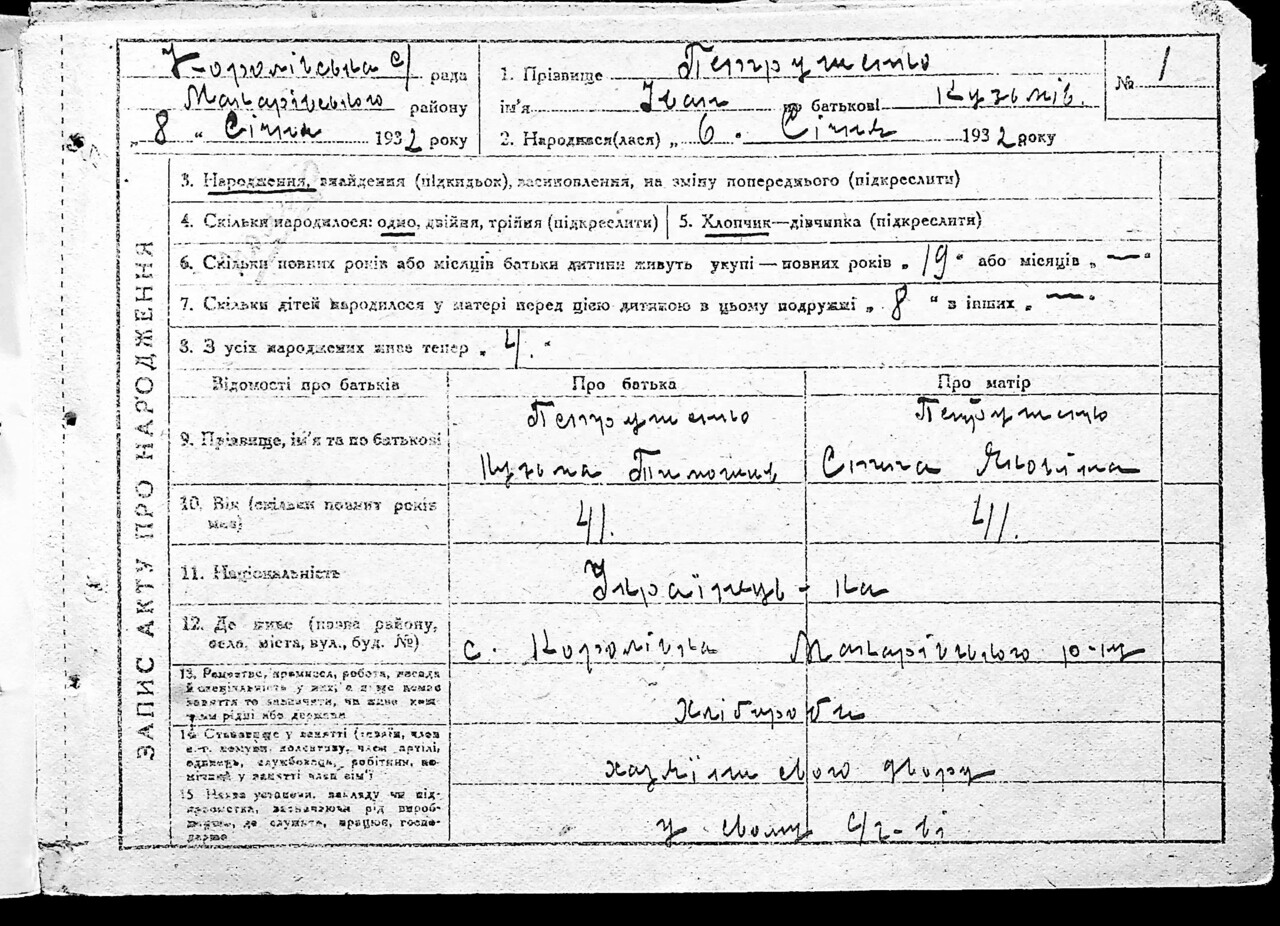 Королівська с/ рада
Макарівського району
„8 „ Січня 1932 року
1. Прізвище Петрушенко
ім'я Іван по батькові Кузьмів.
2. Народився(лася) „ 6 „ Січня 1932 року
№ 1
ЗАПИС АКТУ ПРО НАРОДЖЕННЯ
3. Народження, знайдення (підкидьок), засиновлення, на зміну попереднього (підкреслити)
4. Скільки народилося: одно, двійня, трійня (підкреслити)
5. Хлопчик—дівчинка (підкреслити)
6. Скільки повних років або місяців батьки дитини живуть укупі — повних років „ 19 “ або місяців „ — “
7. Скільки дітей народилося у матері перед цією дитиною в цьому подружжі „ 8 “ в інших „ — “
8. З усіх народжених живе тепер „ 4. “
Відомості про батьків
Про батька
Про матір
9. Прізвище, ім'я та по батькові
Петрушенко
Кузьма Тимошів
Петрушенко
Яковівна
10. Вік (скільки повних років
має)
41.
41.
11. Національність
Українець - ка
12. Де живе (назва району,
село, міста, вул., буд. №)
с. Королівка Макарівського р-ну
13. Ремество, промисел, робота, посада
й спеціальність у них, а коли немає
заняття то зазначити, чи живе кош-
том рідні або держави
Хлібороби
14. Становище у занятті (хазяїн, член
с.-г. комуни, колективу, член артілі,
одинець, службовець, робітник, по-
мічний у занятті член сім'ї
хазяїни свого двору
15. Назва установи, закладу чи під-
приємства, зазначаючи рід вироб-
ництва, де служить, працює, госпо-
дарює
у свому с/г-ві